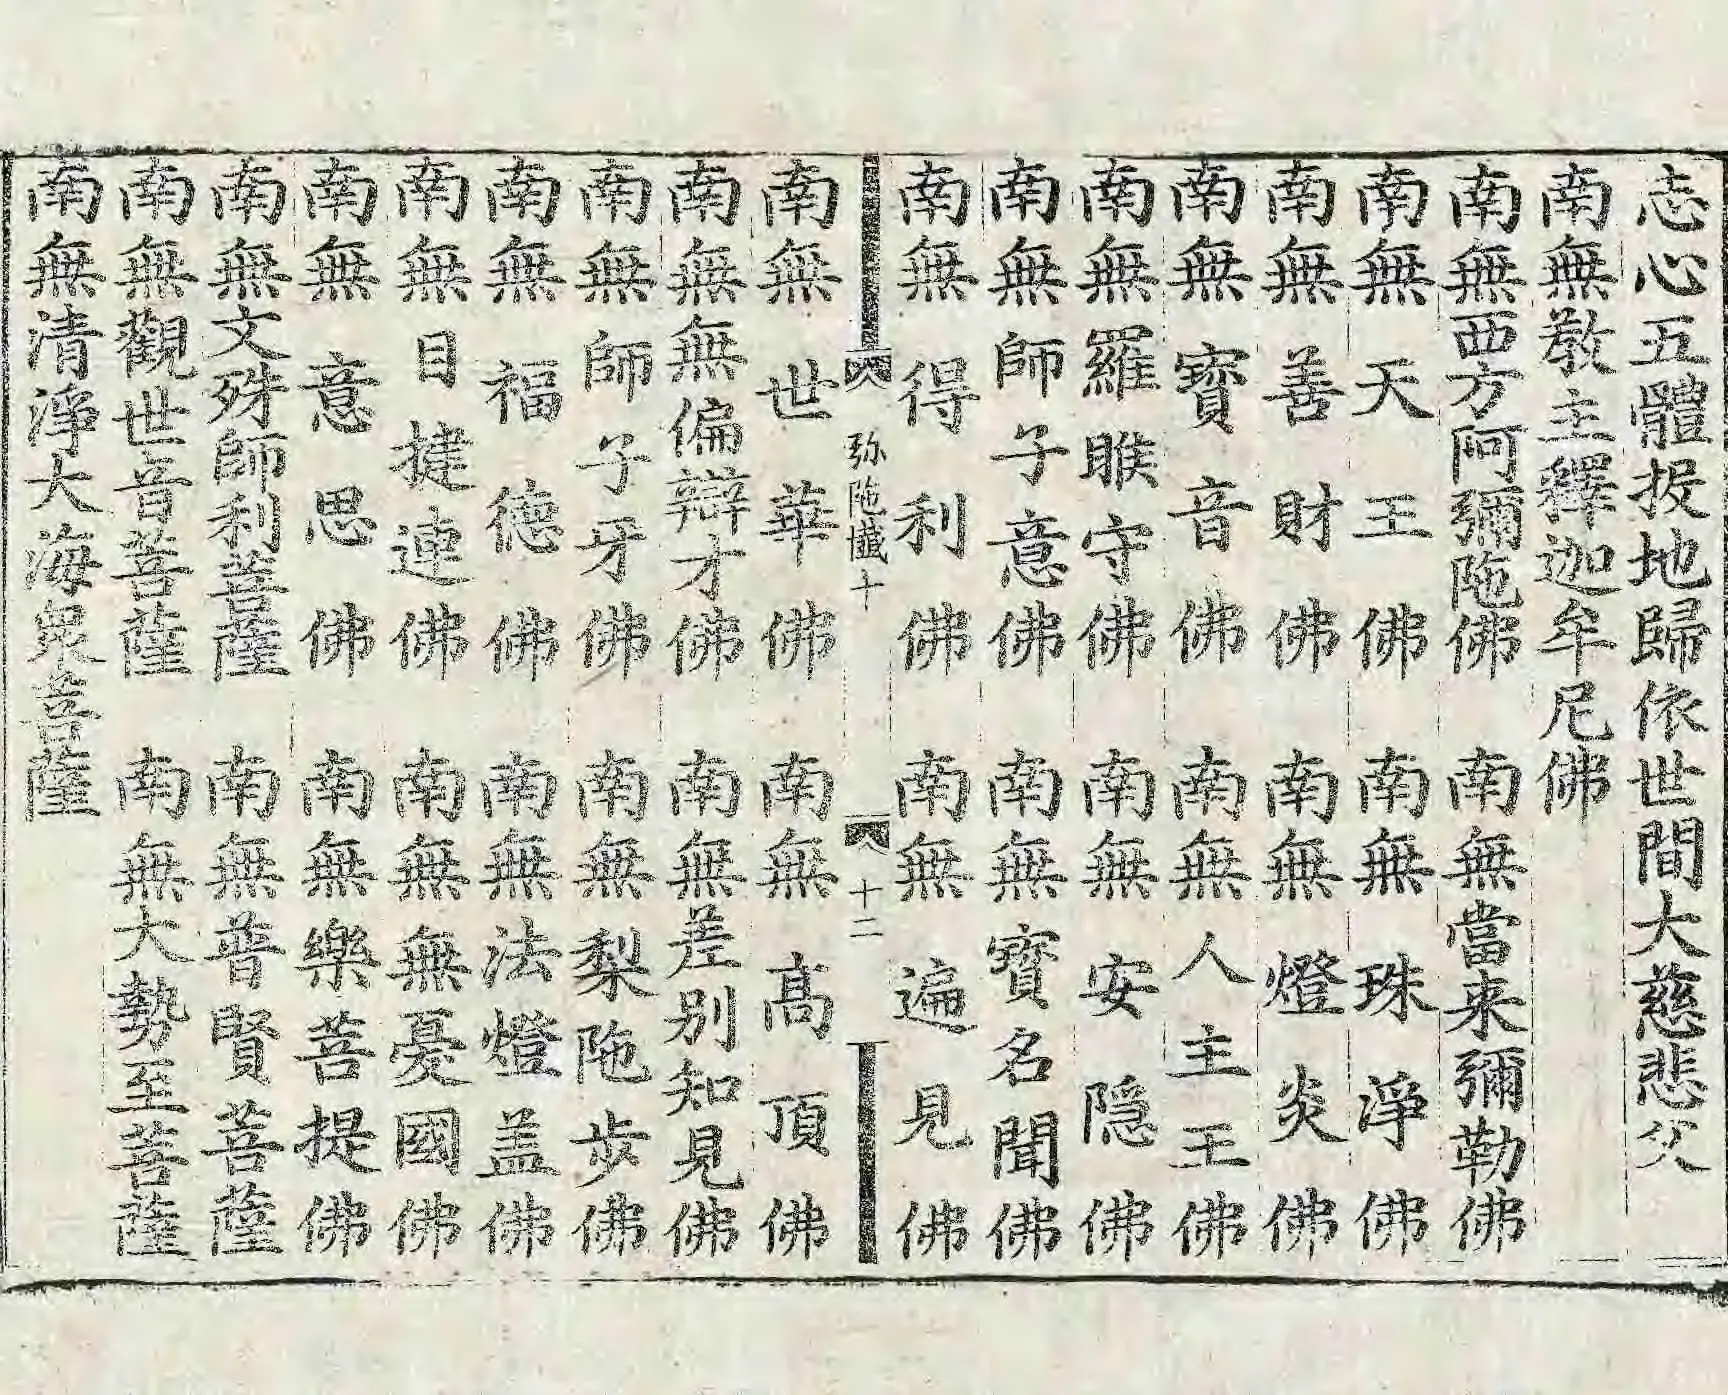 志心五體投地歸依世間大慈悲父
南無教主釋迦牟尼佛
南無西方阿彌陁佛　南無當来彌勒佛
南無天王佛　南無珠淨佛
南無善財佛　南無燈炎佛
南無寳音佛　南無人主王佛
南無羅睺守佛　南無安隠佛
南無師子意佛　南無寳名聞佛
南無得利佛　南無遍見佛
弥陁懺十　十二
南無世華佛　南無髙頂佛
南無無偏辯才佛　南無差别知見佛
南無師子牙佛　南無梨陁步佛
南無福德佛　南無法燈盖佛
南無目揵連佛　南無無憂國佛
南無意思佛　南無樂菩提佛
南無文殊師利菩薩　南無普賢菩薩
南無觀世音菩薩　南無大勢至菩薩
南無清淨大海衆菩薩